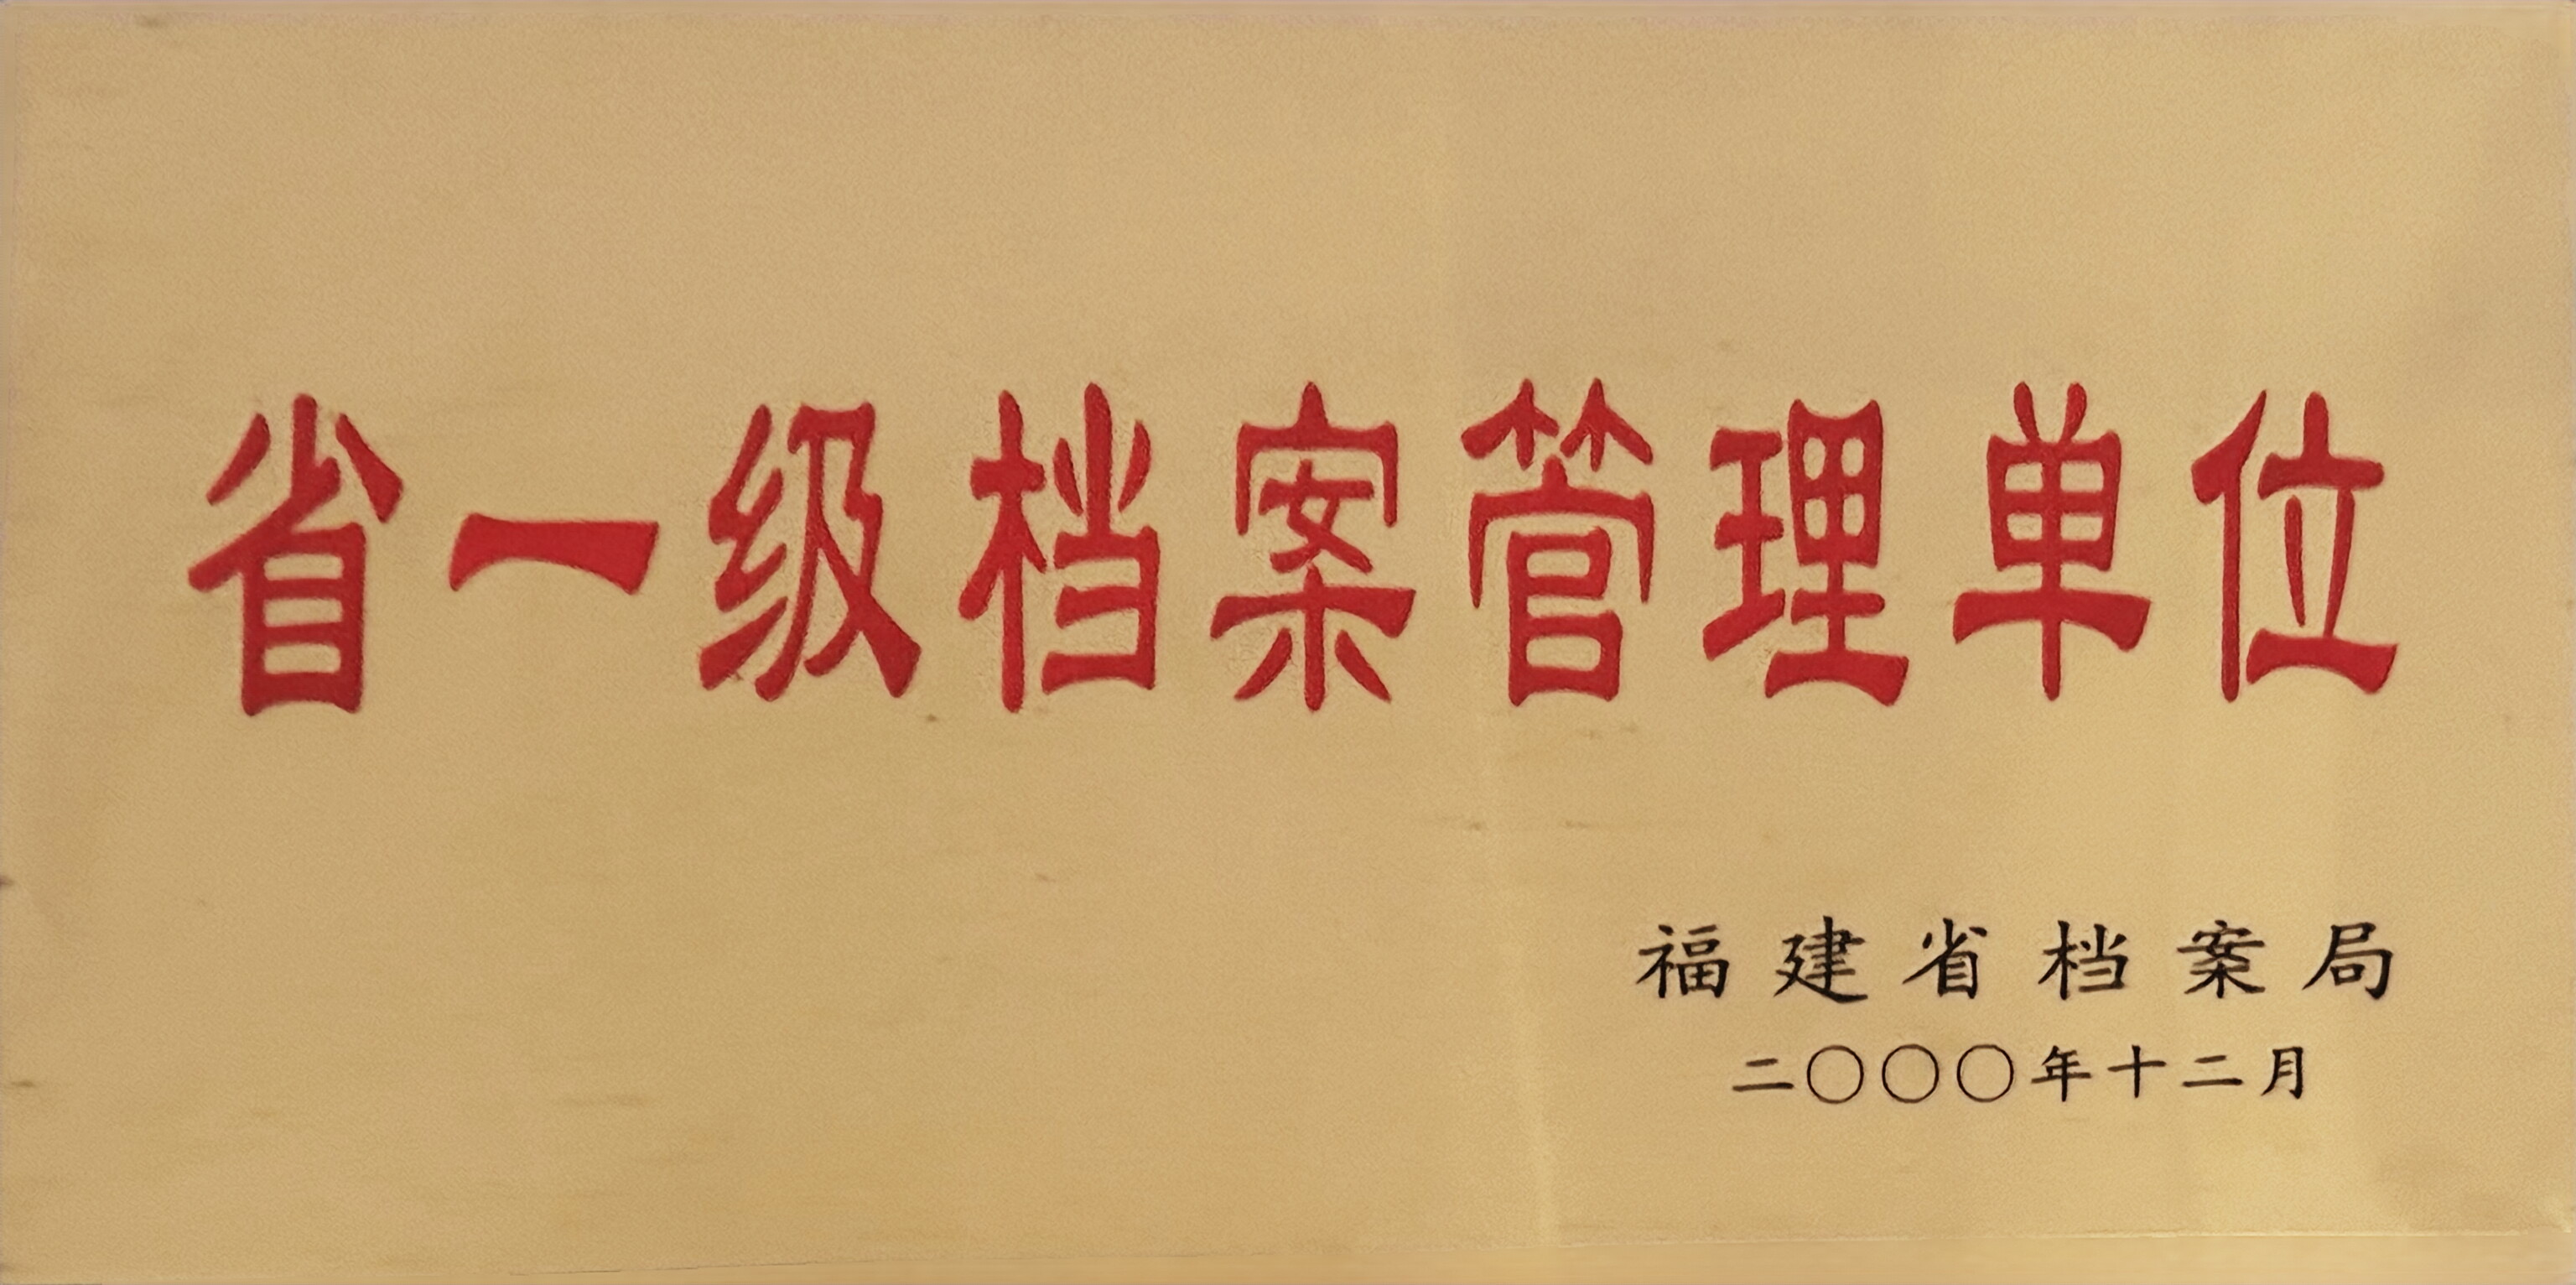 省一级档案管理单位
福建省档案局
二〇〇〇年十二月